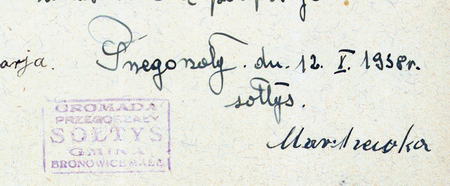 arja. Przegorzały. dn. 12. I. 1938 r.
sołtys.
GROMADA
PRZEGORZAŁY
SOŁTYS
GMINA
BRONOWICE MAŁE